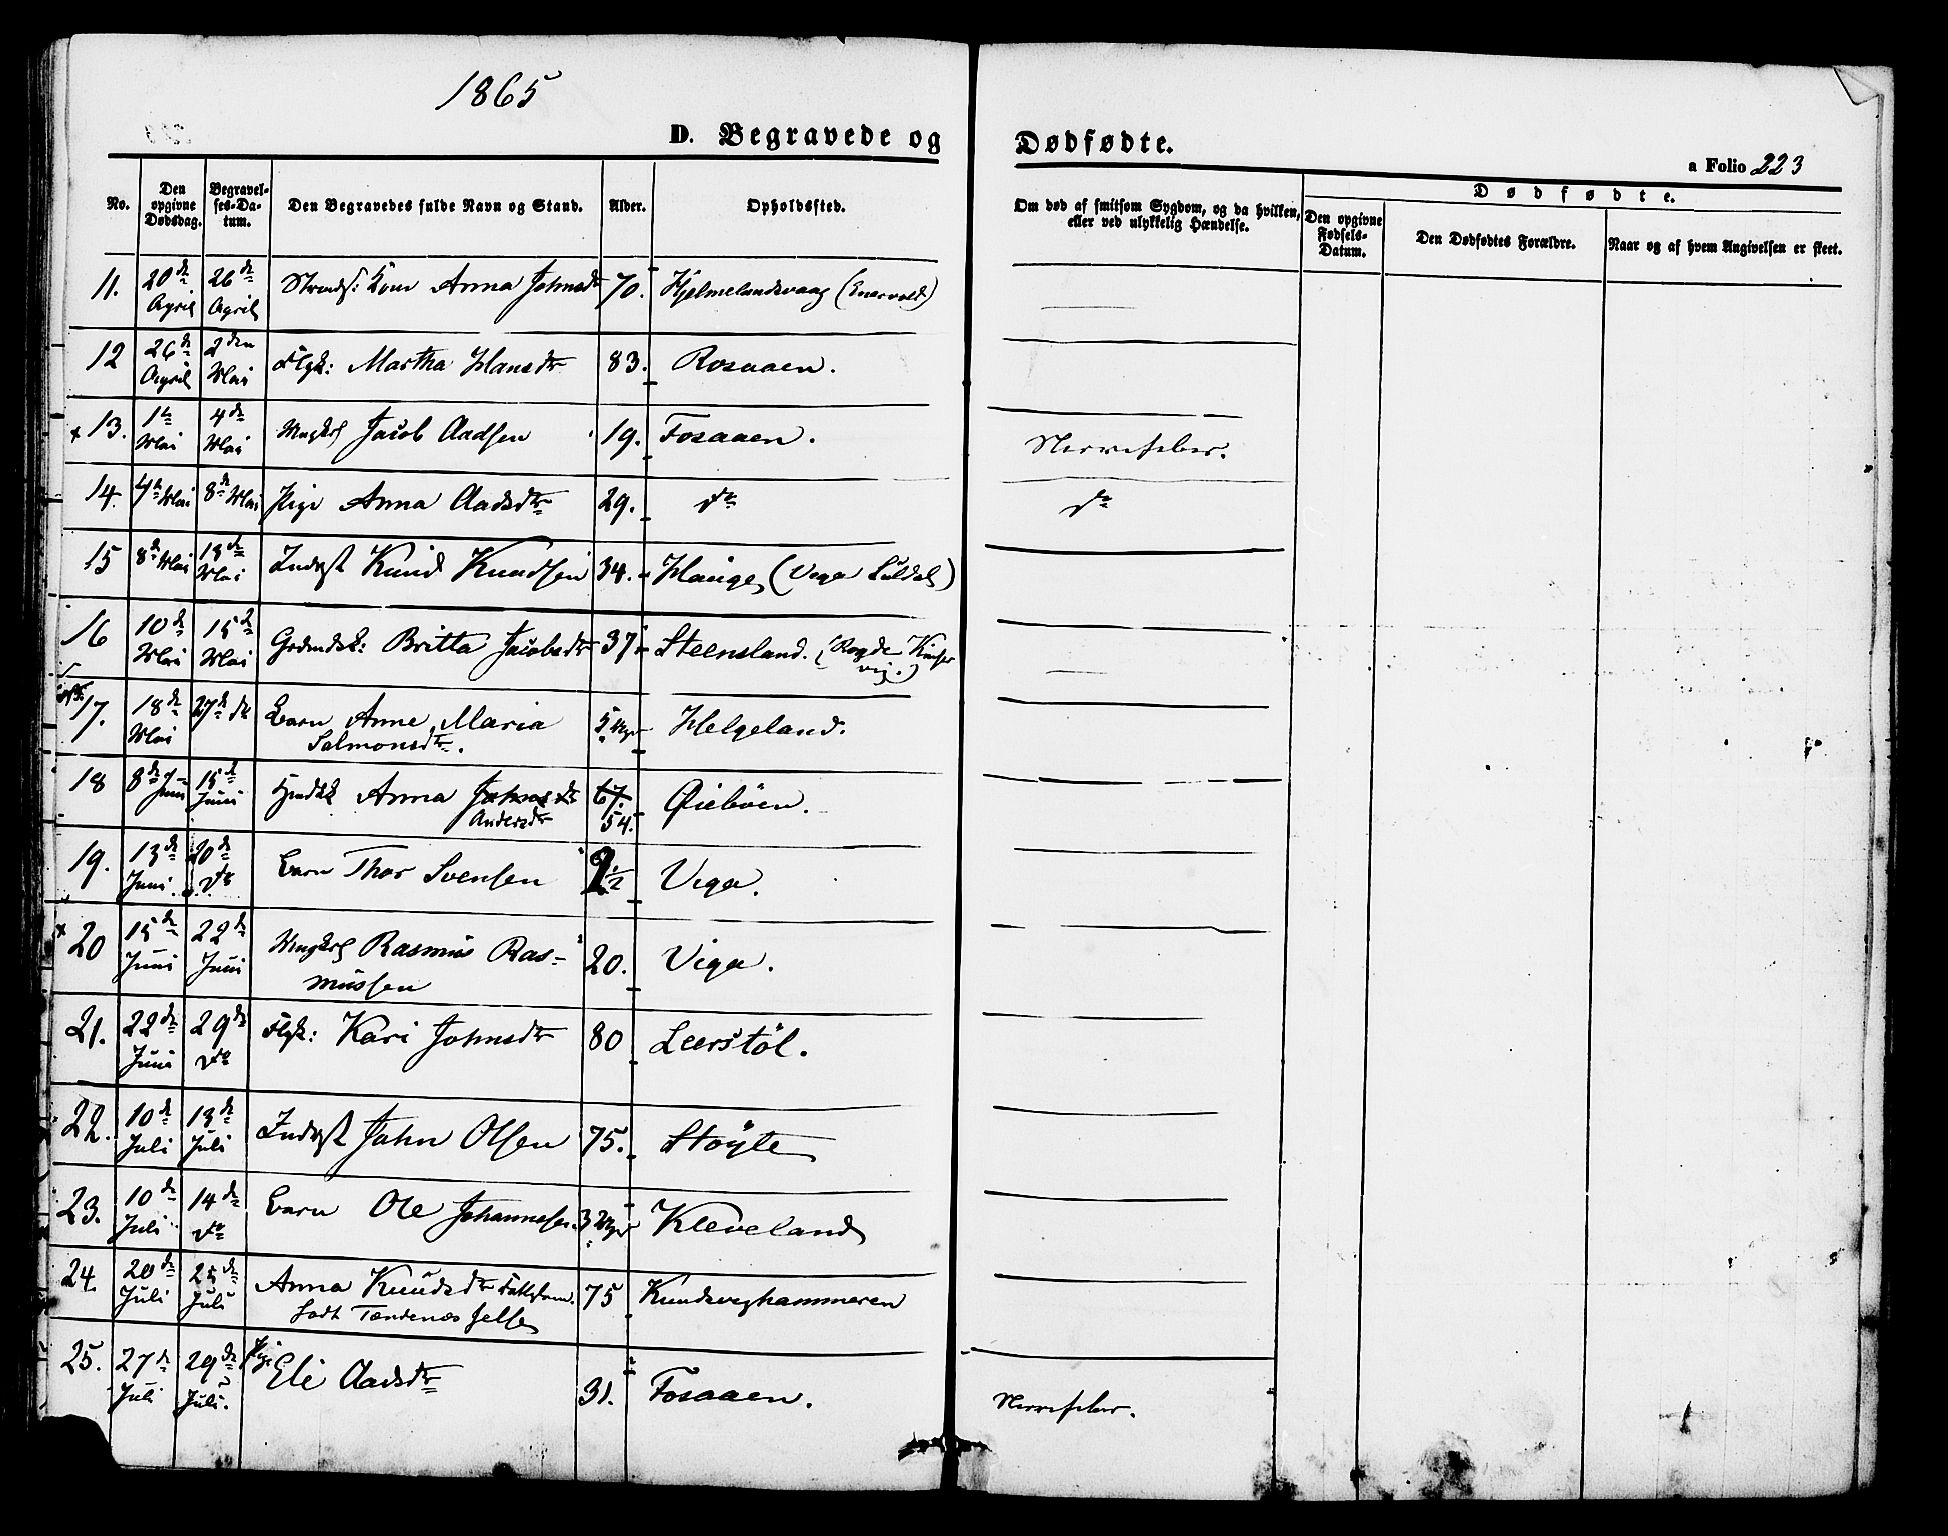 1865
D. Begravede og Dødfødte.
a Folio 223
No.
Den opgivne Dødsdag.
Begravelses-Datum.
Den Begravedes fulde Navn og Stand.
Alder.
Opholdssted.
Om død af smitsom Sygdom, og da hvilken, eller ved ulykkelig Hændelse.
Dødfødte.
Den opgivne Fødsels-Datum.
Den Dødfødtes Forældre.
Naar og af hvem Angivelsen er skeet.
11. 20de April 26de April Kone Anna Johnsdr 70. Hjelmelandsvaag
12 26de April 2den Mai Flgk: Martha Hansdr 83. Rosaaen.
13. 1te Mai 4de Mai Ungkrl Jacob Aadsen 19. Fosaaen. Nervefeber.
14. 4de Mai 8de Mai Pige Anna Aadsdtr 29. do do
15 8de Mai 13de Mai Inderst Knud Knudsen 34. Hauge (Viga Suldal)
16 10de Mai 15de Mai Britta Jacobsdtr 37 Steensland.
17. 18de Mai 27de do Barn Anne Maria
Salmonsdtr. 5 Helgeland.
18 8de Juni 15de Juni Anna Johnsdtr 67.
Andersdtr 54. Øiebøen.
19. 13de Juni 20de do Barn Thor Svensen 1/2 Viga.
20 15de Juni 22de Juni Ungkrl Rasmus Ras-
mussen 20. Viga.
21. 22de Juni 29de do Flgk: Kari Johnsdtr 80 Leerstøl.
22. 10de Juli 13de Juli Inderst John Olsen 75. Støyle
23. 10de Juli 14de do Barn Ole Johannesen 3 Kleveland
24. 20de Juli 25de Juli Anna Knudsdtr 75 Knudsveghammeren
født Jelse
25. 27de Juli 29de Juli. Pige Eli Aadsdtr 31. Fosaaen. Nervefeber.